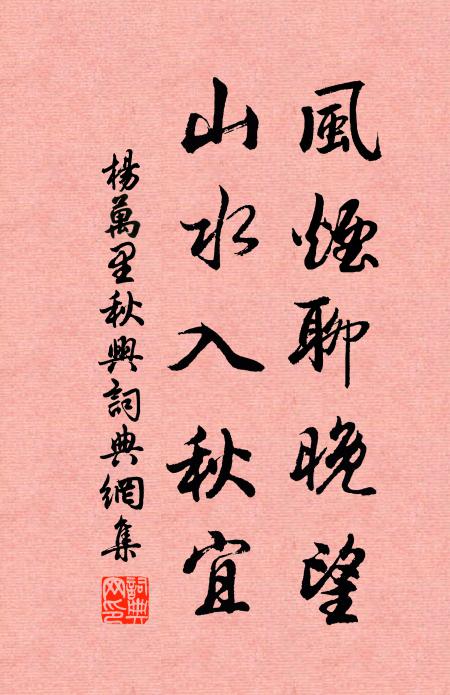 風煙聊晚望
山水入秋宜
楊萬里秋興詞典網集
詞典網印